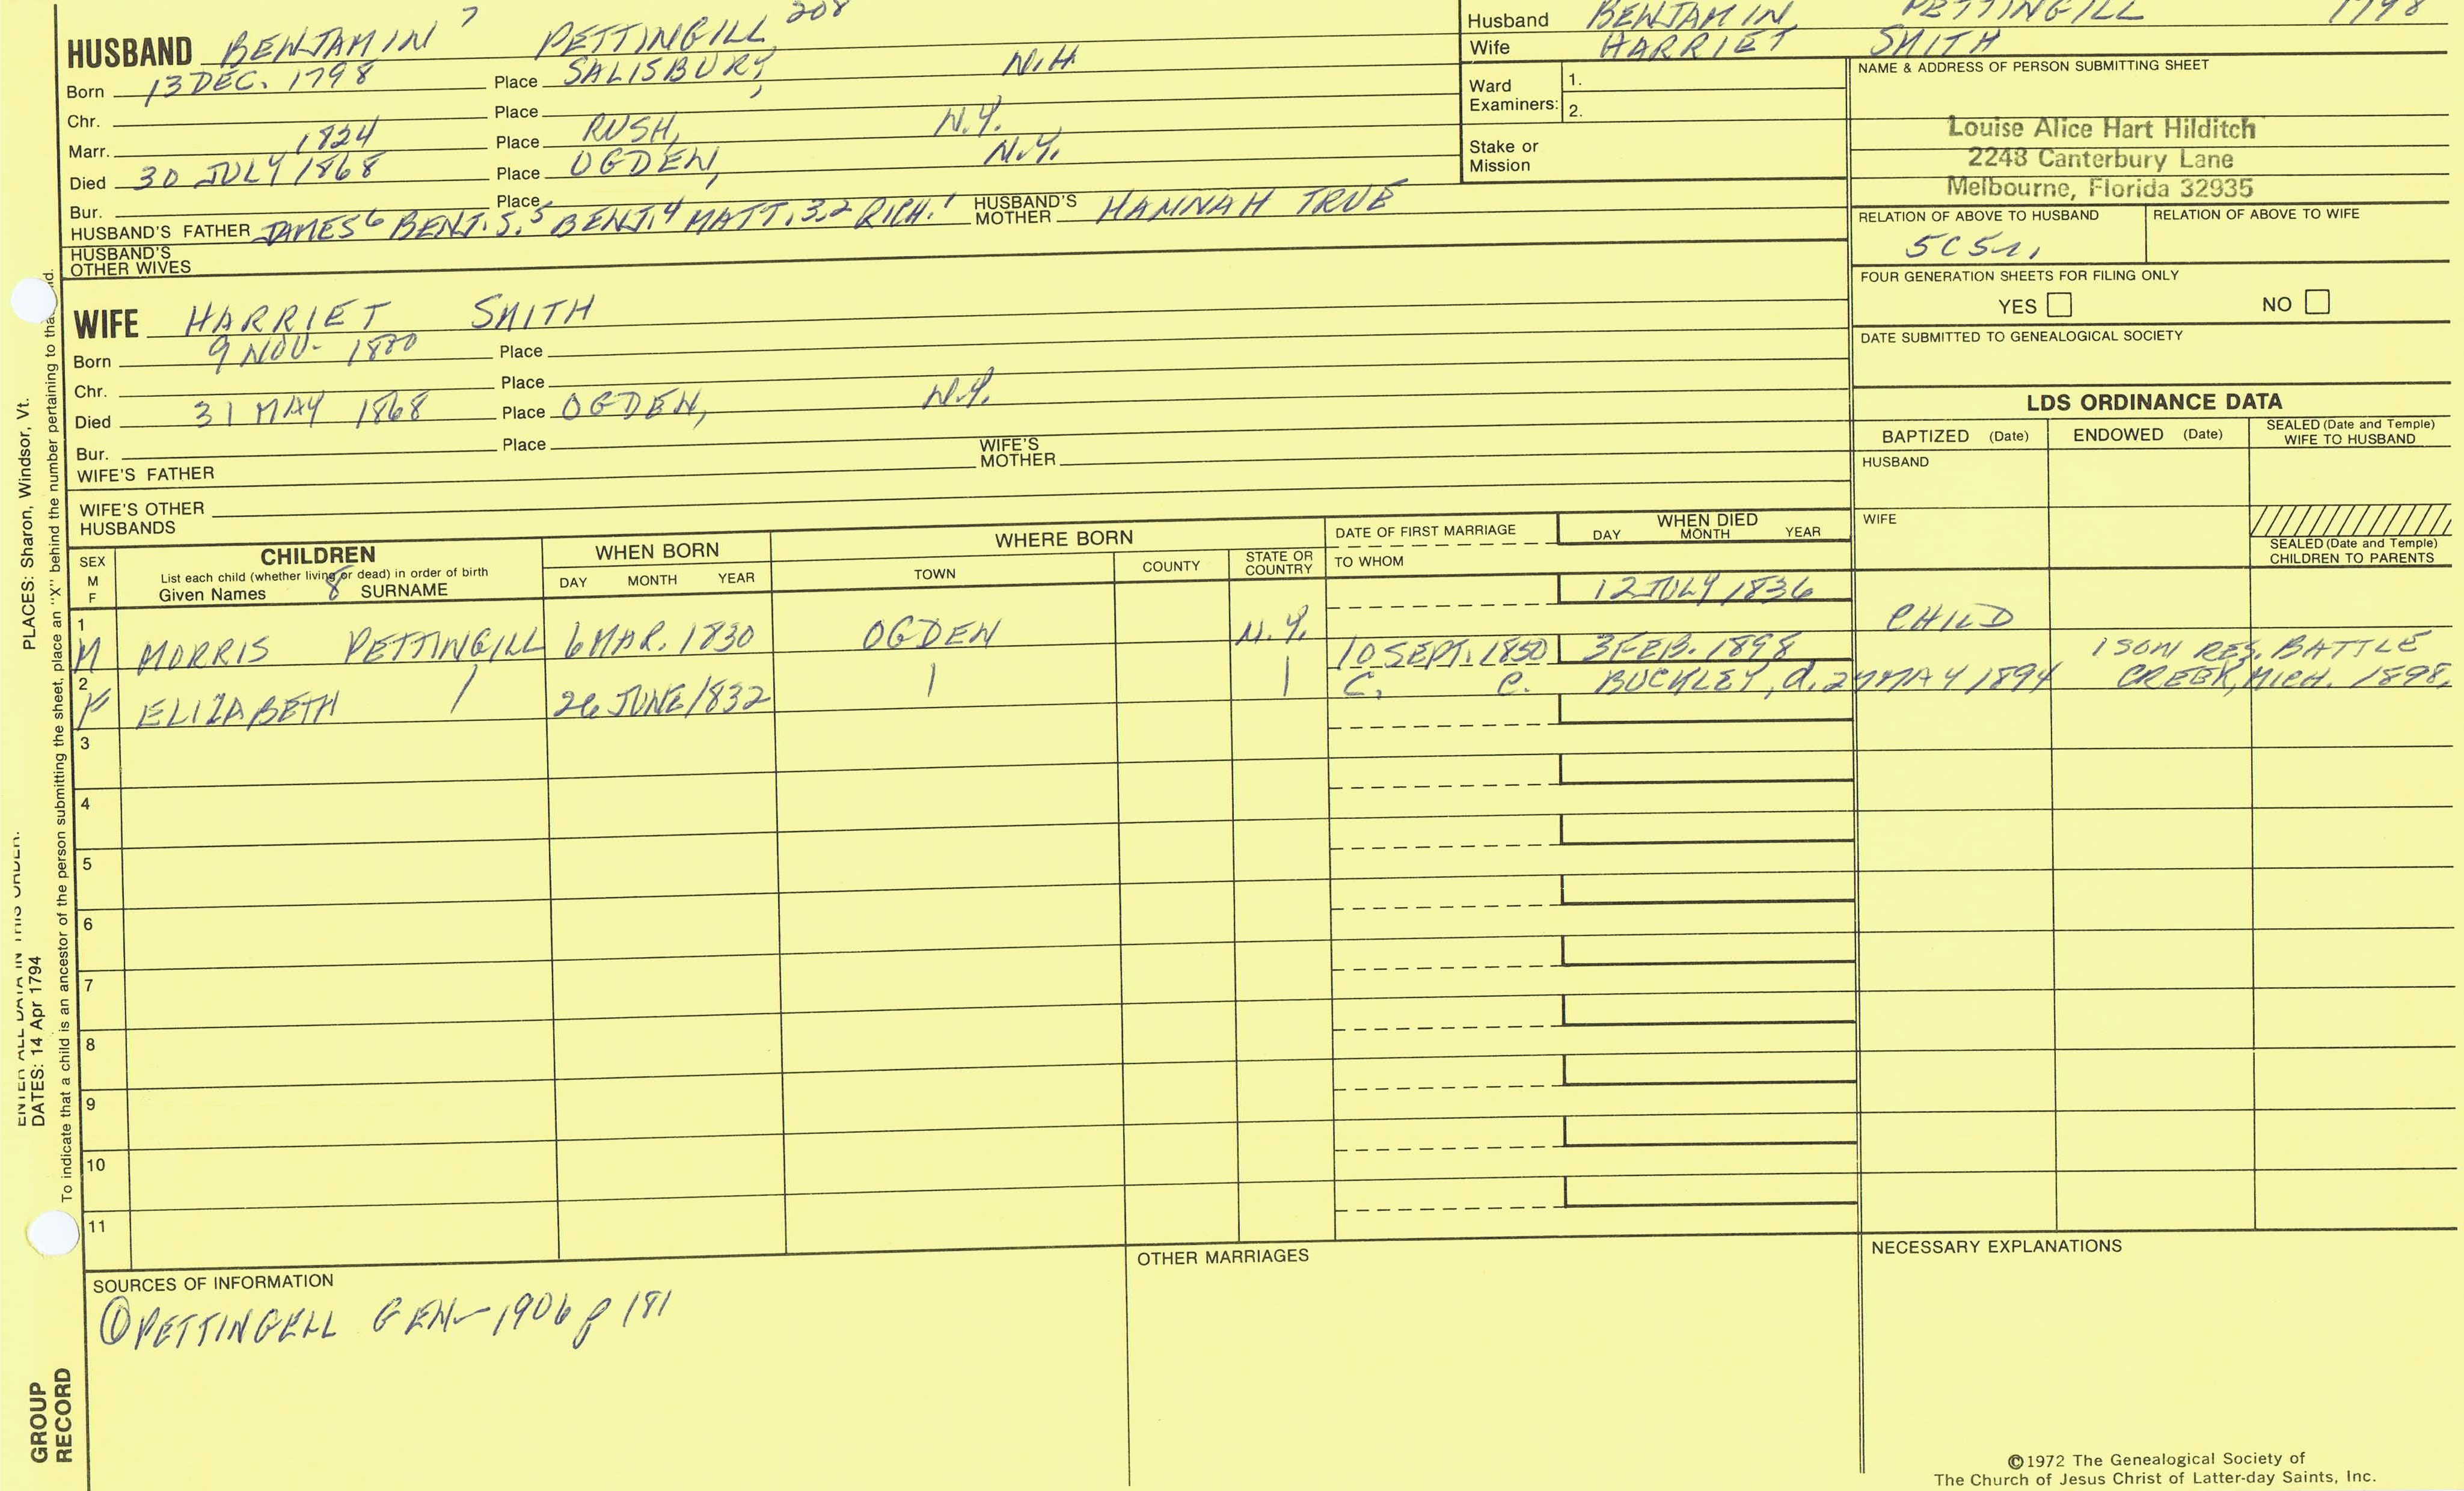 HUSBAND BENJAMIN 7 PETTINGILL 208
Born 13 DEC. 1798 Place SALISBURY, N.H.
Chr. Place
Marr. 1824 Place RUSH, N.Y.
Died 30 JULY 1868 Place OGDEN, N.Y.
Bur. Place
HUSBAND'S FATHER JAMES 6 BENJ. 5. 5 BENJ. 4 MATT. 3,2 RICH. 1 HUSBAND'S MOTHER HANNAH TRUE
HUSBAND'S
OTHER WIVES
WIFE HARRIET SMITH
Born 9 NOV. 1800 Place
Chr. Place
Died 31 MAY 1868 Place OGDEN, N.Y.
Bur. Place
WIFE'S FATHER WIFE'S MOTHER
WIFE'S OTHER
HUSBANDS
Husband BENJAMIN PETTINGILL 1798
Wife HARRIET SMITH
Ward
Examiners: 1.
2.
Stake or
Mission
NAME & ADDRESS OF PERSON SUBMITTING SHEET
Louise Alice Hart Hilditch
2248 Canterbury Lane
Melbourne, Florida 32935
RELATION OF ABOVE TO HUSBAND RELATION OF ABOVE TO WIFE
5C5r.
FOUR GENERATION SHEETS FOR FILING ONLY
YES NO
DATE SUBMITTED TO GENEALOGICAL SOCIETY
LDS ORDINANCE DATA
BAPTIZED (Date) ENDOWED (Date) SEALED (Date and Temple) WIFE TO HUSBAND
HUSBAND
WIFE
SEALED (Date and Temple)
CHILDREN TO PARENTS
SEX
M
F
CHILDREN
List each child (whether living or dead) in order of birth
Given Names 8 SURNAME
WHEN BORN
DAY MONTH YEAR
WHERE BORN
TOWN COUNTY STATE OR COUNTRY
DATE OF FIRST MARRIAGE
TO WHOM
WHEN DIED
DAY MONTH YEAR
1 M MORRIS PETTINGILL 6 MAR. 1830 OGDEN N.Y. 12 JULY 1836 CHILD
2 F ELIZABETH / 26 JUNE 1832 | | 10 SEPT. 1850 3 FEB. 1898 1 SON RES. BATTLE
C. C. BUCKLEY, d. 24 MAY 1894 CREEK, MICH. 1898.
3
4
5
6
7
8
9
10
11
SOURCES OF INFORMATION
① PETTINGELL GEN- 1906 p 181
OTHER MARRIAGES
NECESSARY EXPLANATIONS
©1972 The Genealogical Society of
The Church of Jesus Christ of Latter-day Saints, Inc.
PLACES: Sharon, Windsor, Vt.
ENTER ALL DATA IN THIS ORDER:
DATES: 14 Apr 1794
To indicate that a child is an ancestor of the person submitting the sheet, place an "X" behind the number pertaining to that
GROUP
RECORD